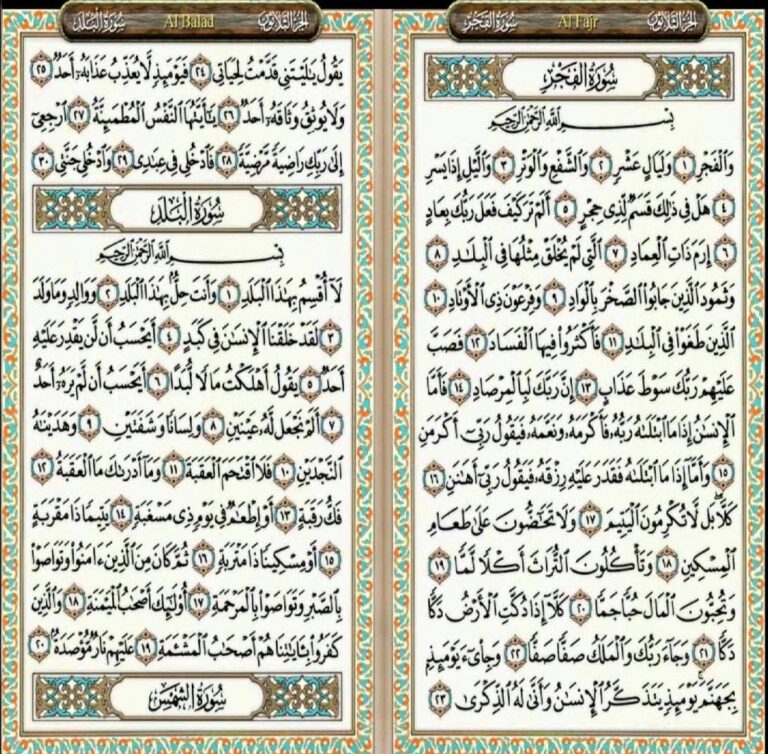 الجزء الثلاثون Al Fajr سورة الفجر
سورة الفجر
بسم الله الرحمن الرحيم
وَالْفَجْرِ ١ وَلَيَالٍ عَشْرٍ ٢ وَالشَّفْعِ وَالْوَتْرِ ٣ وَاللَّيْلِ إِذَا يَسْرِ
٤ هَلْ فِي ذَٰلِكَ قَسَمٌ لِذِي حِجْرٍ ٥ أَلَمْ تَرَ كَيْفَ فَعَلَ رَبُّكَ بِعَادٍ
٦ إِرَمَ ذَاتِ الْعِمَادِ ٧ الَّتِي لَمْ يُخْلَقْ مِثْلُهَا فِي الْبِلَادِ ٨
وَثَمُودَ الَّذِينَ جَابُوا الصَّخْرَ بِالْوَادِ ٩ وَفِرْعَوْنَ ذِي الْأَوْتَادِ ١٠
الَّذِينَ طَغَوْا فِي الْبِلَادِ ١١ فَأَكْثَرُوا فِيهَا الْفَسَادَ ١٢ فَصَبَّ
عَلَيْهِمْ رَبُّكَ سَوْطَ عَذَابٍ ١٣ إِنَّ رَبَّكَ لَبِالْمِرْصَادِ ١٤ فَأَمَّا
الْإِنْسَٰنُ إِذَا مَا ابْتَلَىٰهُ رَبُّهُ فَأَكْرَمَهُ وَنَعَّمَهُ فَيَقُولُ رَبِّي أَكْرَمَنِ
١٥ وَأَمَّا إِذَا مَا ابْتَلَىٰهُ فَقَدَرَ عَلَيْهِ رِزْقَهُ فَيَقُولُ رَبِّي أَهَٰنَنِ ١٦
كَلَّا بَلْ لَا تُكْرِمُونَ الْيَتِيمَ ١٧ وَلَا تَحَٰضُّونَ عَلَىٰ طَعَامِ
الْمِسْكِينِ ١٨ وَتَأْكُلُونَ التُّرَاثَ أَكْلًا لَمًّا ١٩
وَتُحِبُّونَ الْمَالَ حُبًّا جَمًّا ٢٠ كَلَّا إِذَا دُكَّتِ الْأَرْضُ دَكًّا
دَكًّا ٢١ وَجَاءَ رَبُّكَ وَالْمَلَكُ صَفًّا صَفًّا ٢٢ وَجِايءَ يَوْمَئِذٍ
بِجَهَنَّمَ يَوْمَئِذٍ يَتَذَكَّرُ الْإِنْسَٰنُ وَأَنَّىٰ لَهُ الذِّكْرَىٰ ٢٣
الجزء الثلاثون Al Balad سورة البلد
يَقُولُ يَٰلَيْتَنِي قَدَّمْتُ لِحَيَاتِي ٢٤ فَيَوْمَئِذٍ لَا يُعَذِّبُ عَذَابَهُ أَحَدٌ ٢٥
وَلَا يُوثِقُ وَثَاقَهُ أَحَدٌ ٢٦ يَٰأَيَّتُهَا النَّفْسُ الْمُطْمَئِنَّةُ ٢٧ ارْجِعِي
إِلَىٰ رَبِّكِ رَاضِيَةً مَرْضِيَّةً ٢٨ فَادْخُلِي فِي عِبَٰدِي ٢٩ وَادْخُلِي جَنَّتِي ٣٠
سورة البلد
بسم الله الرحمن الرحيم
لَا أُقْسِمُ بِهَٰذَا الْبَلَدِ ١ وَأَنْتَ حِلٌّ بِهَٰذَا الْبَلَدِ ٢ وَوَالِدٍ وَمَا وَلَدَ
٣ لَقَدْ خَلَقْنَا الْإِنْسَٰنَ فِي كَبَدٍ ٤ أَيَحْسَبُ أَنْ لَنْ يَقْدِرَ عَلَيْهِ
أَحَدٌ ٥ يَقُولُ أَهْلَكْتُ مَالًا لُبَدًا ٦ أَيَحْسَبُ أَنْ لَمْ يَرَهُ أَحَدٌ
٧ أَلَمْ نَجْعَلْ لَهُ عَيْنَيْنِ ٨ وَلِسَانًا وَشَفَتَيْنِ ٩ وَهَدَيْنَٰهُ
النَّجْدَيْنِ ١٠ فَلَا اقْتَحَمَ الْعَقَبَةَ ١١ وَمَا أَدْرَىٰكَ مَا الْعَقَبَةُ ١٢
فَكُّ رَقَبَةٍ ١٣ أَوْ إِطْعَٰمٌ فِي يَوْمٍ ذِي مَسْغَبَةٍ ١٤ يَتِيمًا ذَا مَقْرَبَةٍ
١٥ أَوْ مِسْكِينًا ذَا مَتْرَبَةٍ ١٦ ثُمَّ كَانَ مِنَ الَّذِينَ ءَامَنُوا وَتَوَاصَوْا
بِالصَّبْرِ وَتَوَاصَوْا بِالْمَرْحَمَةِ ١٧ أُولَٰئِكَ أَصْحَٰبُ الْمَيْمَنَةِ ١٨ وَالَّذِينَ
كَفَرُوا بِـَٔايَٰتِنَا هُمْ أَصْحَٰبُ الْمَشْـَٔمَةِ ١٩ عَلَيْهِمْ نَارٌ مُؤْصَدَةٌ ٢٠
سورة الشمس